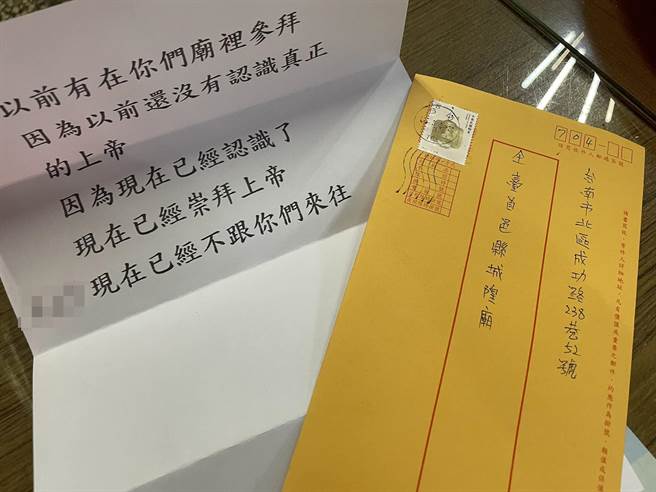 以前有在你們廟裡參拜
因為以前還沒有認識真正
的上帝
因為現在已經認識了
現在已經崇拜上帝
現在已經不跟你們來往
704
台南市北區成功路238巷52號
全臺首邑縣城隍廟